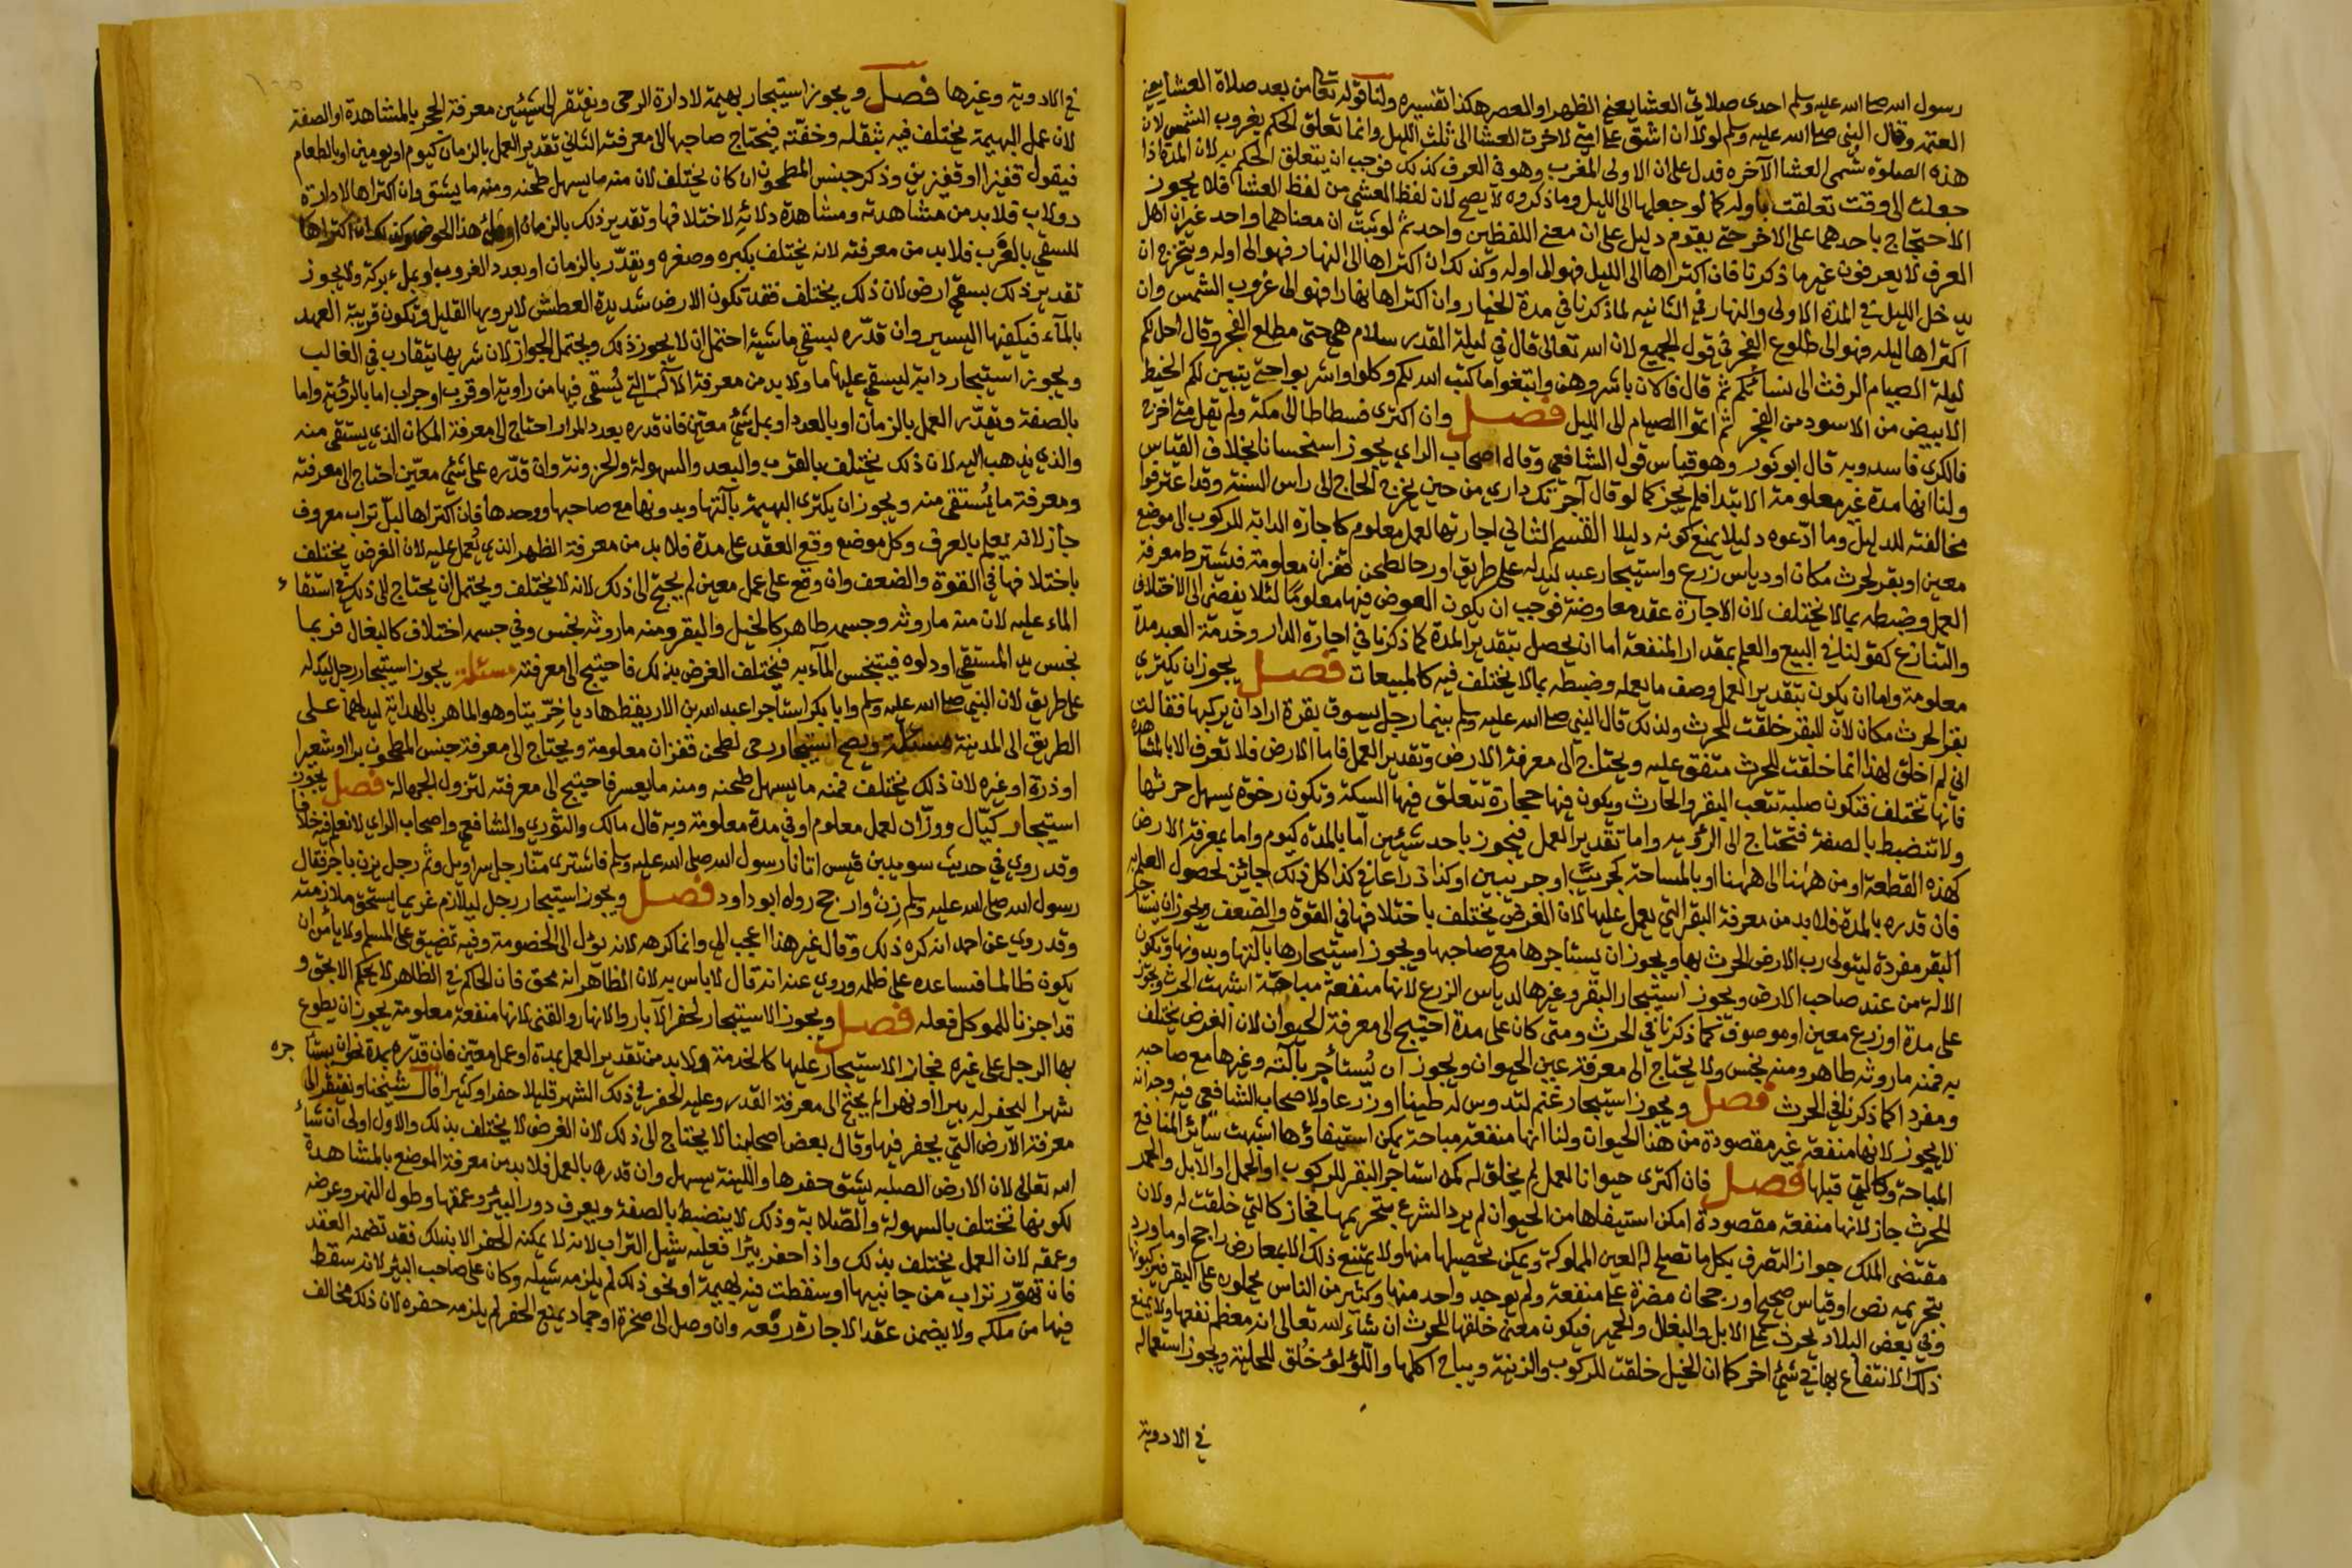 رسول الله صلى الله عليه وسلم احدى صلاتي العشا يعني الظهر او العصر هكذا تفسيره ولنا قوله تعالى من بعد صلاة العشا يعني
العتمة وقال النبي صلى الله عليه وسلم لولا ان اشق على امتي لاخرت العشا الى ثلث الليل وانما تعلق الحكم بغروب الشمس لان
هذه الصلوة تسمى العشا الآخره فدل على ان الاولى المغرب وهو في العرف كذلك فوجب ان يتعلق الحكم به لان المدة اذا
جعلت الى وقت تعلقت باوله كما لو جعلها الى الليل وما ذكروه لا يصح لان لفظ العشي من لفظ العشا فلا يجوز
الاحتجاج باحدهما على الاخر حتى يقوم دليل على ان معنى اللفظين واحد ثم لو ثبت ان معناهما واحد غير ان اهل
العرف لا يعرفون غير ما ذكرنا فان اكتراها الى الليل فهو الى اوله وكذلك ان اكتراها الى النهار فهو الى اوله ويتخرج ان
يدخل الليل في المدة الاولى والنهار في الثانيه لما ذكرنا في مدة الخيار وان اكتراها نهارا فهو الى غروب الشمس وان
اكتراها ليله فهو الى طلوع الفجر في قول الجميع لان الله تعالى قال في ليلة القدر سلام هي حتى مطلع الفجر وقال احل لكم
ليلة الصيام الرفث الى نسائكم ثم قال فالان باشروهن وابتغوا ما كتب الله لكم وكلوا واشربوا حتى يتبين لكم الخيط
الابيض من الاسود من الفجر ثم اتموا الصيام الى الليل فصل وان اكترى فسطاطا الى مكة ولم يقل متى اخرج
فالكرى فاسد وبه قال ابو ثور وهو قياس قول الشافعي وقال اصحاب الراي يجوز استحسانا بخلاف القياس
ولنا انها مدة غير معلومة الابتدا فلم يجز كما لو قال آجرتك داري من حين يخرج الحاج الى راس السنة وقد اعترفوا
مخالفته للدليل وما ادعوه دليلا يمنع كونه دليلا القسم الثاني اجارتها لعمل معلوم كاجارة الدابة للركوب الى موضع
معين او بقر لحرث مكان او دياس زرع واستيجار عبد ليدله على طريق او رحا لطحن قفزان معلومة فيشترط معرفة
العمل وضبطه بما لا يختلف لان الاجارة عقد معاوضة فوجب ان يكون العوض فيها معلوما لئلا يفضي الى الاختلاف
والتنازع كقولنا في البيع والعلم بمقدار المنفعة اما ان يحصل بتقدير المدة كما ذكرنا في اجارة الدار وخدمة العبد مدة
معلومة واما ان يكون بتقدير العمل وصف ما يعمله وضبطه بما لا يختلف فيه كالمبيعات فصل يجوز ان يكتري
بقر الحرث مكان لان البقر خلقت للحرث ولذلك قال النبي صلى الله عليه وسلم بينما رجل يسوق بقرة اراد ان يركبها فقالت
اني لم اخلق لهذا انما خلقت للحرث متفق عليه ويحتاج الى معرفة الارض وتقدير العمل فاما الارض فلا تعرف الا بالمشاهدة
فانها تختلف فتكون صلبة تتعب البقر والحارث ويكون فيها حجارة تتعلق فيها السكة وتكون رخوة يسهل حرثها
ولا تنضبط بالصفة فتحتاج الى الرؤيه واما تقدير العمل فيجوز باحد شيئين اما بالمدة كيوم واما بمعرفة الارض
كهذه القطعة او من ههنا الى ههنا او بالمساحة كجريب او جريبين او كذا ذراعا في كذا كل ذلك جائز لحصول العلم به
فان قدره بالمدة فلا بد من معرفة البقر التي يعمل عليها لان الغرض يختلف باختلافها في القوة والضعف ويجوز ان يستاجر
البقر مفردة ليتولى رب الارض الحرث بها ويجوز ان يستاجرها مع صاحبها ويجوز استيجارها بآلتها وبدونها وتكون
الالة من عند صاحب الارض ويجوز استيجار البقر وغيرها لدياس الزرع لانها منفعة مباحة اشبهت الحرث ويجوز
على مدة او زرع معين او موصوف كما ذكرنا في الحرث ومتى كان على مدة احتيج الى معرفة الحيوان لان الغرض يختلف
به فمنه ما روثه طاهر ومنه نجس ولا يحتاج الى معرفة عين الحيوان ويجوز ان يستأجر بآلته وغيرها مع صاحبه
ومفردا كما ذكرنا في الحرث فصل ويجوز استيجار غنم لتدوس له طينا او زرعا ولاصحاب الشافعي فيه وجه انه
لا يجوز لانها منفعة غير مقصودة من هذا الحيوان ولنا انها منفعة مباحة يمكن استيفاؤها اشبهت سائر المنافع
المباحة وكالتي قبلها فصل فان اكترى حيوانا لعمل لم يخلق له كمن استاجر البقر للركوب او الحمل او الابل والحمر
للحرث جاز لانها منفعة مقصودة امكن استيفاها من الحيوان لم يرد الشرع بتحريمها فجاز كالتي خلقت له ولان
مقتضى الملك جواز التصرف بكل ما تصلح له العين المملوكة ويمكن تحصيلها منها ولا يمتنع ذلك الا بمعارض راجح او ما ورد
بتحريمه نص او قياس صحيح او رجحان مضرة على منفعة ولم يوجد واحد منها وكثير من الناس يحملون على البقر ويركبونها
وفي بعض البلاد يحرث على الابل والبغال والحمير فيكون معنى خلقها للحرث ان شاء الله تعالى انه معظم نفعها ولا يمنع
ذلك الانتفاع بها في شئ اخر كما ان الخيل خلقت للركوب والزينة ويباح اكلها واللؤلؤ خلق للحلية ويجوز استعماله
في الادوية
في الادوية وغيرها فصل ويجوز استيجار بهيمة لادارة الرحى ويفتقر الى شيئين معرفة الحجر بالمشاهدة او الصفة
لان عمل البهيمة يختلف فيه بثقله وخفته فيحتاج صاحبها الى معرفته الثاني تقدير العمل بالزمان كيوم او يومين او بالطعام
فيقول قفيزا او قفيزين وذكر جنس المطحون ان كان يختلف لان منه ما يسهل طحنه ومنه ما يشق وان اكتراها لادارة
دولاب فلا بد من مشاهدته ومشاهدة دلائه لاختلافها وتقدير ذلك بالزمان او ملئ هذا الحوض وكذلك ان اكتراها
للسقي بالغرب فلا بد من معرفته لانه يختلف بكبره وصغره ويقدر بالزمان او بعدد الغروب او بملء بركة ولا يجوز
تقدير ذلك بسقي ارض لان ذلك يختلف فقد تكون الارض شديدة العطش لا يرويها القليل وتكون قريبة العهد
بالماء فيكفيها اليسير وان قدره بسقي ماشية احتمل ان لا يجوز ذلك ويحتمل الجواز لان شربها يتقارب في الغالب
ويجوز استيجار دابة ليسقي عليها ماء ولا بد من معرفة الآلة التي يستقي فيها من راوية او قرب او جراب اما بالرؤية واما
بالصفة ويقدر العمل بالزمان او بالعدد او بمل شئ معين فان قدره بعدد المرار احتاج الى معرفة المكان الذي يستقي منه
والذي يذهب اليه لان ذلك يختلف بالقرب والبعد والسهولة والحزونة وان قدره على شئ معين احتاج الى معرفته
ومعرفة ما يستقي منه ويجوز ان يكتري البهيمة بآلتها وبدونها مع صاحبها ووحدها فان اكتراها لبل تراب معروف
جاز لانه يعلم بالعرف وكل موضع وقع العقد على مدة فلا بد من معرفة الظهر الذي يعمل عليه لان الغرض يختلف
باختلافها في القوة والضعف وان وقع على عمل معين لم يحتج الى ذلك لانه لا يختلف ويحتمل ان يحتاج الى ذلك في استقاء
الماء عليه لان منه ما روثه وجسمه طاهر كالخيل والبقر ومنه ما روثه نجس وفي جسمه اختلاف كالبغال فربما
نجس يد المستقي او دلوه فيتنجس الماء به فيختلف الغرض بذلك فاحتيج الى معرفته مسئلة يجوز استيجار رجل ليدله
على طريق لان النبي صلى الله عليه وسلم وابا بكر استاجرا عبد الله بن الاريقط هاديا خريتا وهو الماهر بالهداية ليدلهما على
الطريق الى المدينة مسئلة ويصح استيجار رحى لطحن قفزان معلومة ويحتاج الى معرفة جنس المطحون برا او شعيرا
او ذرة او غيره لان ذلك يختلف فمنه ما يسهل طحنه ومنه ما يعسر فاحتيج الى معرفته لتزول الجهالة فصل يجوز
استيجار كيال ووزان لعمل معلوم او في مدة معلومة وبه قال مالك والثوري والشافعي واصحاب الراي لا نعلم فيه خلافا
وقد روي في حديث سويد بن قيس اتانا رسول الله صلى الله عليه وسلم فاشترى منا رجل سراويل وثم رجل يزن باجر فقال
رسول الله صلى الله عليه وسلم زن وارجح رواه ابو داود فصل ويجوز استيجار رجل ليلازم غريما يستحق ملازمته
وقد روي عن احمد انه كره ذلك وقال غير هذا اعجب الي وانما كرهه لانه يؤل الى الخصومة وفيه تضييق على المسلم ولا يأمن ان
يكون ظالما فيساعده على ظلمه وروي عنه انه قال لا باس به لان الظاهر انه محق فان الحاكم في الظاهر لا يحكم الا بحق و
قد اجزنا للموكل فعله فصل ويجوز الاستيجار لحفر الآبار والانهار والقنى لانها منفعة معلومة يجوز ان يطوع
بها الرجل على غيره فجاز الاستيجار عليها كالخدمة ولا بد من تقدير العمل بمدة او عمل معين فان قدره بمدة نحو ان يستاجره
شهرا ليحفر له بيرا او نهرا لم يحتج الى معرفة القدر وعليه الحفر في ذلك الشهر قليلا حفر او كثيرا قال شيخنا ويفتقر الى
معرفة الارض التي يحفر فيها وقال بعض اصحابنا لا يحتاج الى ذلك لان الغرض لا يختلف بذلك والاول اولى ان شاء
الله تعالى لان الارض الصلبه يشق حفرها واللينة يسهل وان قدره بالعمل فلا بد من معرفة الموضع بالمشاهدة
لكونها تختلف بالسهولة والصلابة وذلك لا ينضبط بالصفة ويعرف دور البئر وعمقها وطول النهر وعرضه
وعمقه لان العمل يختلف بذلك واذا حفر بئرا فعليه شيل التراب لانه لا يمكنه الحفر الا بذلك فقد تضمنه العقد
فان تهور تراب من جانبيها او سقطت فيه بهيمة او نحو ذلك لم يلزمه شيله وكان على صاحب البئر لانه سقط
فيها من ملكه ولا يضمن عقد الاجارة رفعه وان وصل الى صخرة او جماد يمنع الحفر لم يلزمه حفره لان ذلك مخالف